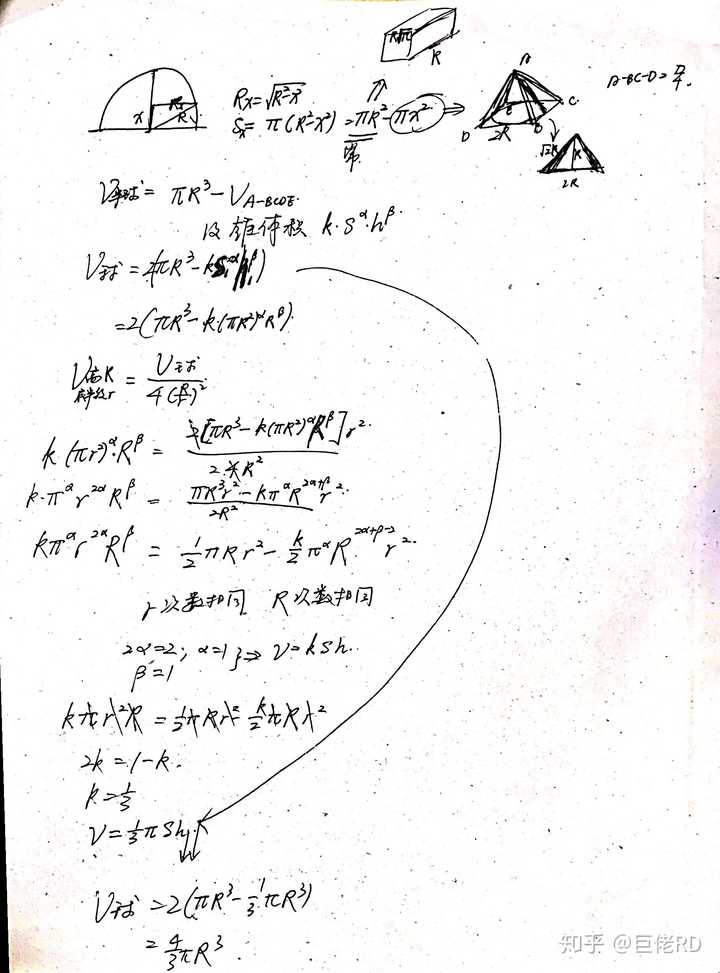 R
A
A-BC-D = π/4.
Rx = √(R²-x²)
Sx = π(R²-x²) = πR² - πx²
x
R
D
E
B
C
2R
√2R
R
2R
V半球 = πR³ - V_{A-BCDE}.
设锥体积 k·S^α·h^β.
V球 = 2(πR³ - k
= 2(πR³ - k·(πR²)^α R^β).
V高R 底半径r = V球 / 4(R/r)²
k(πr²)^α·R^β = [πR³ - k(πR²)^α R^β]r² / 2R²
k·π^α r^{2α} R^β = πR³r² - kπ^α R^{2α+β} r² / 2R²
kπ^α r^{2α} R^β = 1/2 πRr² - k/2 π^α R^{2α+β-2} r².
r次数相同 R次数相同
2α=2; α=1
β=1 } ⇒ V = kSh.
kπr²R = 1/2 πRr² - k/2 πRr²
2k = 1-k.
k = 1/3
V = 1/3 πSh
V球 = 2(πR³ - 1/3 πR³)
= 4/3 πR³
知乎 @巨佬RD